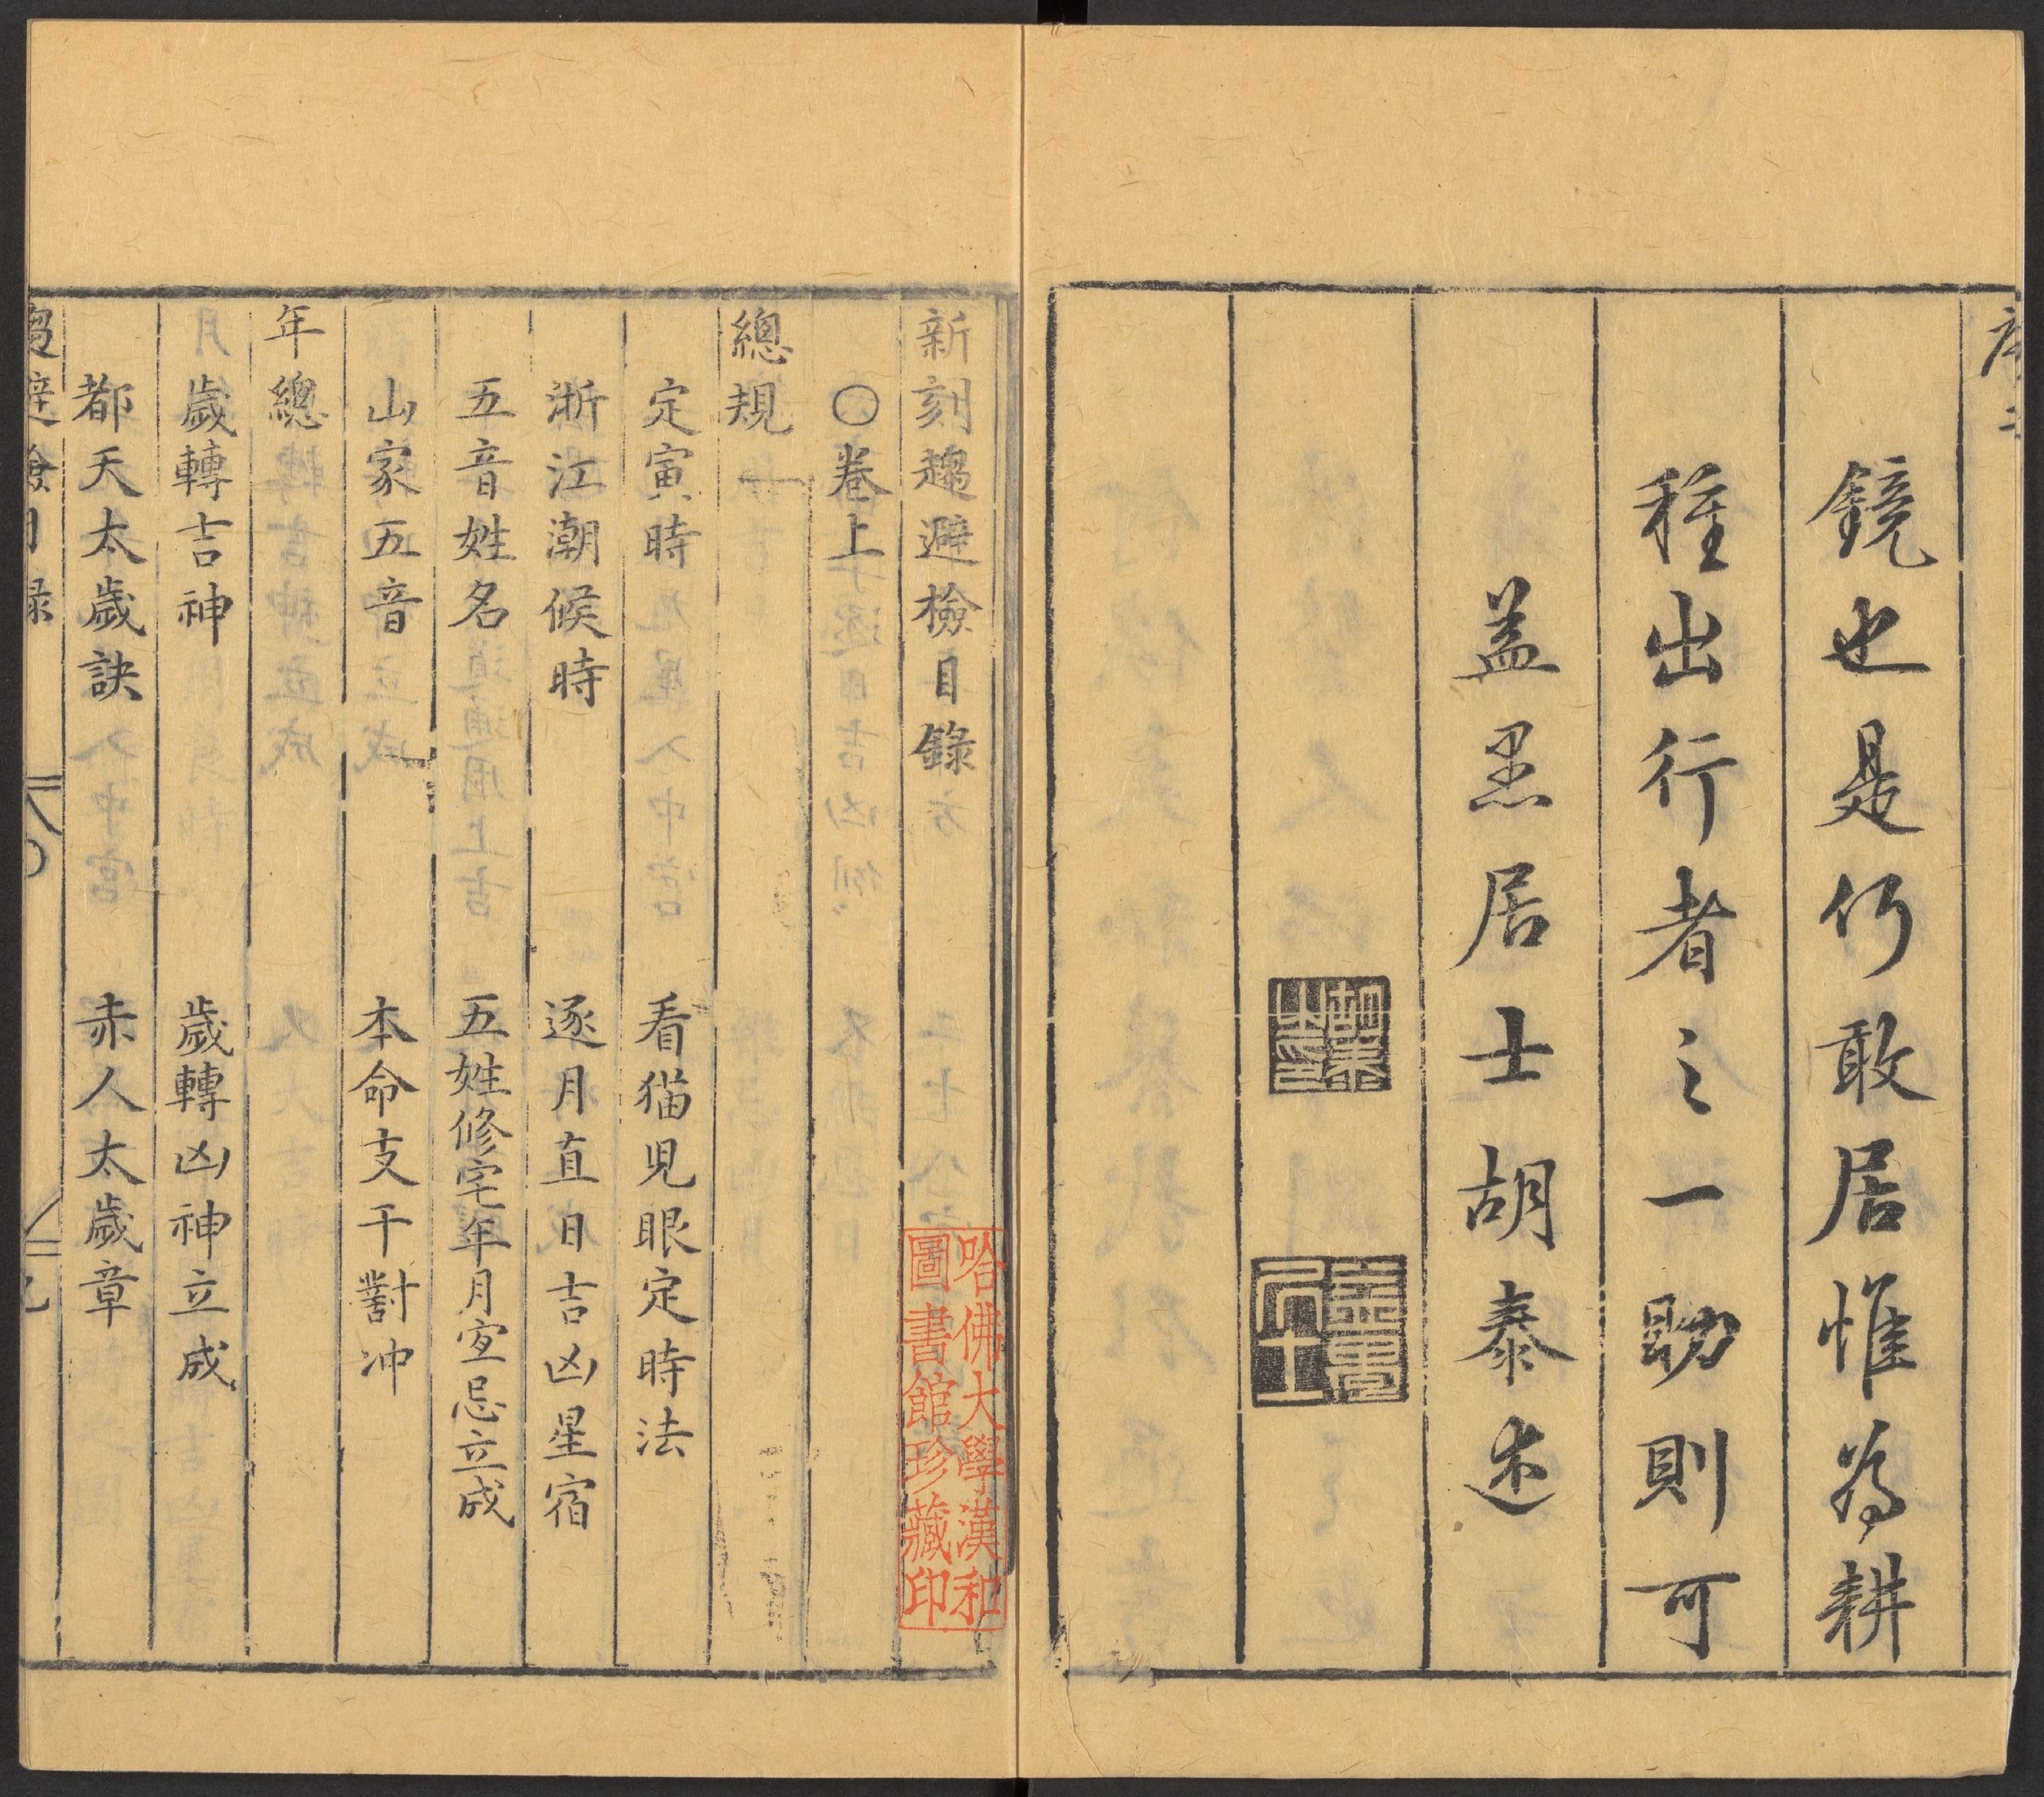 鏡也是仍敢居惟為耕
種出行者之一助則可
盖䍃居士胡泰述
胡泰
之印
居士
新刻趨避檢目錄
○卷上
總規
定寅時　看猫児眼定時法
浙江潮候時　逐月直日吉凶星宿
五音姓名　五姓修宅年月宜忌立成
山家五音　本命支干對冲
年總
歲轉吉神　歲轉凶神立成
都天太歲訣　赤人太歲章
趨避檢目錄
哈佛大學漢和
圖書館珍藏印